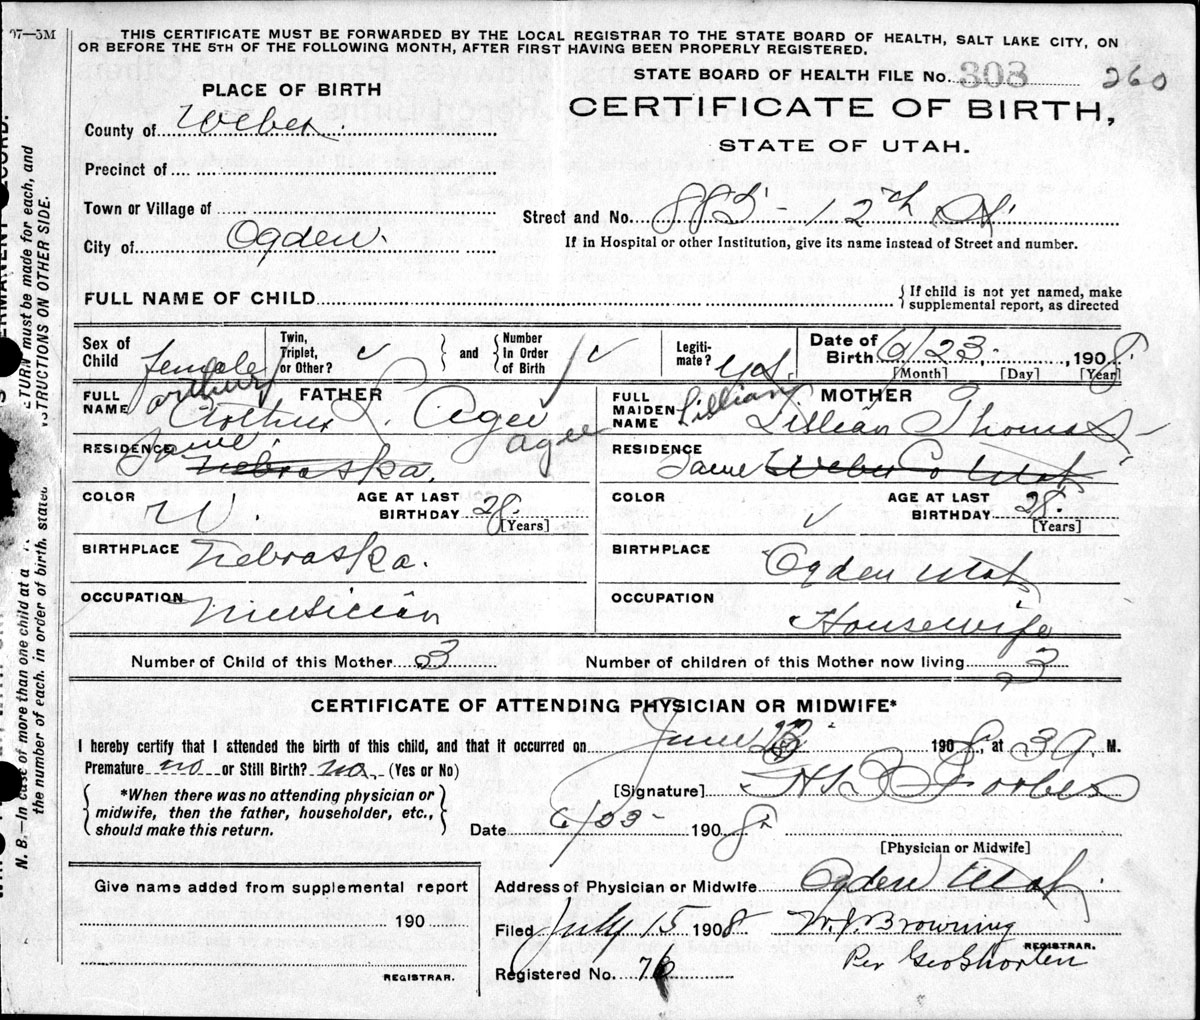 07—5M
THIS CERTIFICATE MUST BE FORWARDED BY THE LOCAL REGISTRAR TO THE STATE BOARD OF HEALTH, SALT LAKE CITY, ON
OR BEFORE THE 5TH OF THE FOLLOWING MONTH, AFTER FIRST HAVING BEEN PROPERLY REGISTERED.
STATE BOARD OF HEALTH FILE No. 303 260
PLACE OF BIRTH
CERTIFICATE OF BIRTH,
STATE OF UTAH.
County of Weber.
Precinct of
Town or Village of
Street and No. 885 - 12th St
City of Ogden.
If in Hospital or other Institution, give its name instead of Street and number.
FULL NAME OF CHILD
{If child is not yet named, make supplemental report, as directed
Sex of Child female
Twin, Triplet, or Other? ✓ } and { Number In Order of Birth ✓
Legiti- mate? yes.
Date of Birth 6/23 - , 1908
[Month] [Day] [Year]
FATHER
FULL NAME arthur Arthur L. Agee agee
MOTHER
FULL MAIDEN NAME Lillian Lillian Thomas
RESIDENCE Same Nebraska.
RESIDENCE Same Weber Co Utah
COLOR W.
AGE AT LAST BIRTHDAY 28 [Years]
COLOR ✓
AGE AT LAST BIRTHDAY 28. [Years]
BIRTHPLACE Nebraska.
BIRTHPLACE Ogden Utah
OCCUPATION Musician
OCCUPATION Housewife
Number of Child of this Mother 3
Number of children of this Mother now living 3
CERTIFICATE OF ATTENDING PHYSICIAN OR MIDWIFE*
I hereby certify that I attended the birth of this child, and that it occurred on June 23 1908, at 3 A. M.
Premature no or Still Birth? no. (Yes or No)
[Signature] H B Forbes
{ *When there was no attending physician or midwife, then the father, householder, etc., should make this return. }
Date 6/23 - 1908
[Physician or Midwife]
Give name added from supplemental report
190
REGISTRAR.
Address of Physician or Midwife Ogden Utah.
Filed July 15 1908 W. J. Browning
REGISTRAR.
Per Geo Shorten
Registered No. 76
N. B.—In case of more than one child at a
RETURN must be made for each, and
the number of each, in order of birth, stated
INSTRUCTIONS ON OTHER SIDE.
PERMANENT RECORD.